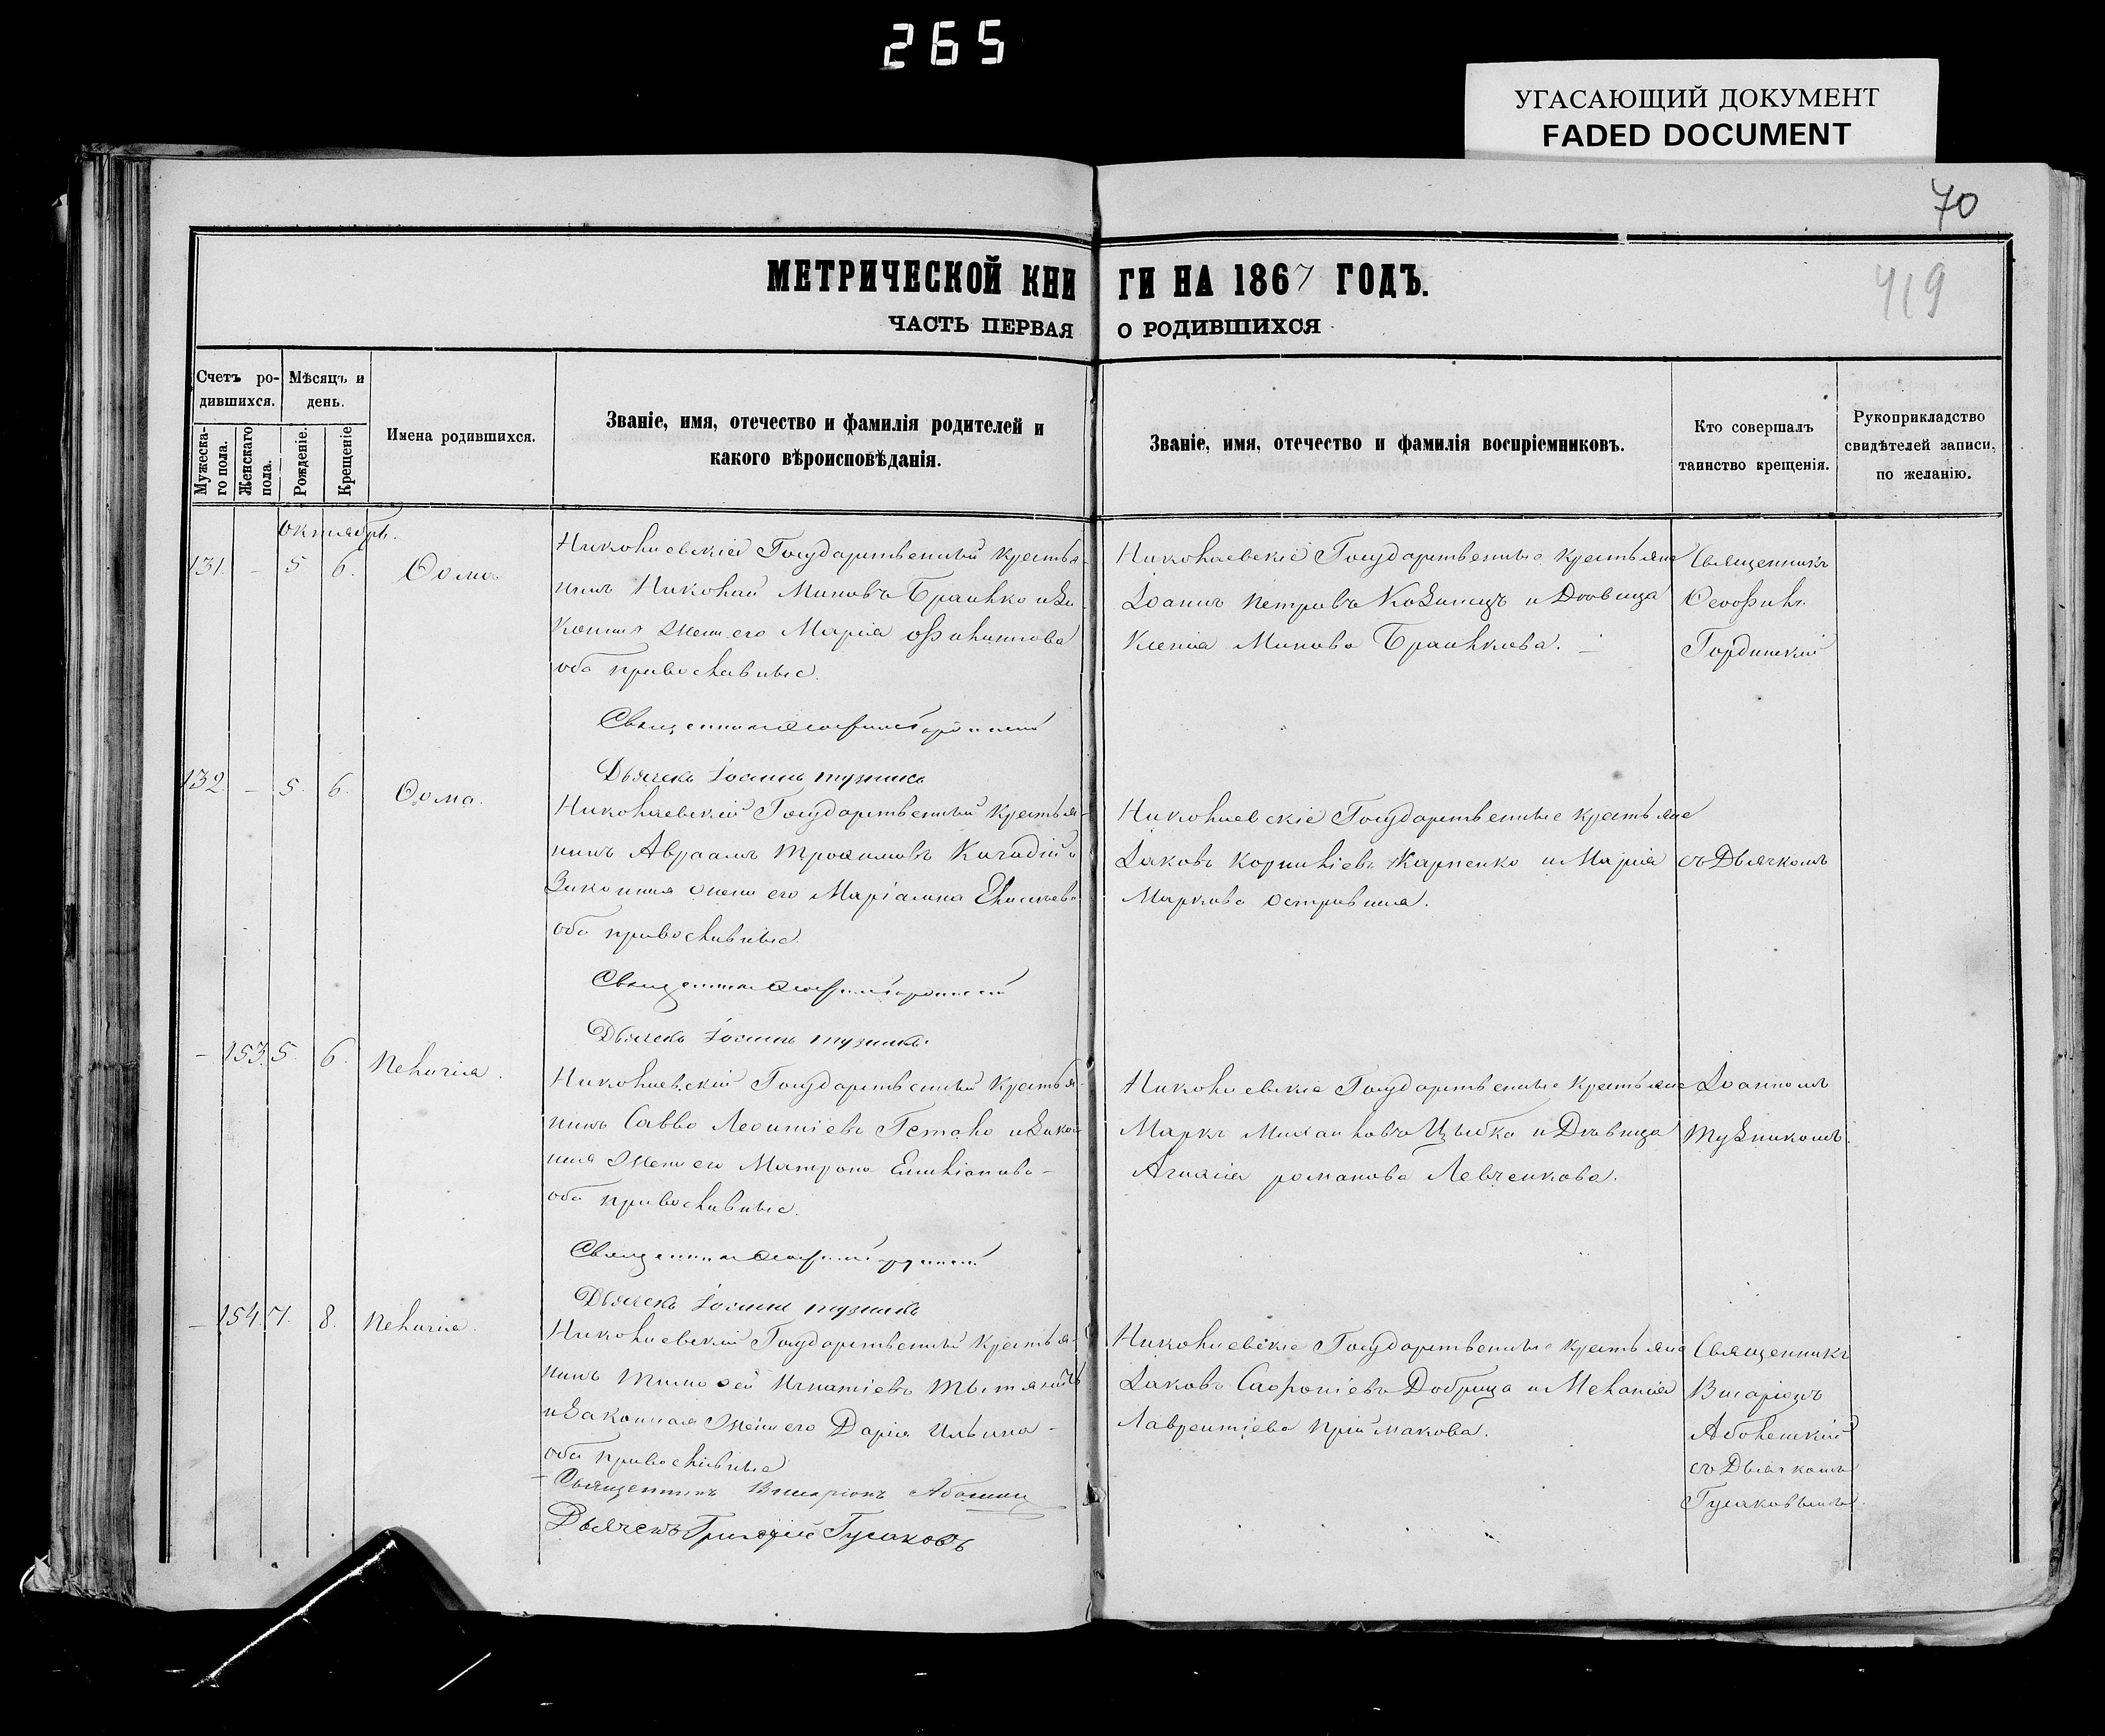 265
УГАСАЮЩИЙ ДОКУМЕНТ
FADED DOCUMENT
70
МЕТРИЧЕСКОЙ КНИГИ НА 1867 ГОДЪ.
419
ЧАСТЬ ПЕРВАЯ О РОДИВШИХСЯ
Счетъ ро-
дившихся.
Мѣсяцъ и
день.
Мужеска-
го пола.
Женскаго
пола.
Рожденіе.
Крещеніе.
Имена родившихся.
Званіе, имя, отечество и фамилія родителей и
какого вѣроисповѣданія.
Званіе, имя, отечество и фамилія воспріемниковъ.
Кто совершалъ
таинство крещенія.
Рукоприкладство
свидѣтелей записи,
по желанію.
Октябрь.
131. - 5 6. Ѳома
Николаевскій Государственный крестья-
нинъ Николай Миновъ
жена его Марія
оба православные.
Дьячекъ Іоаннъ Тузникъ
Николаевскіе Государственные крестьяне
Іоаннъ Петровъ и Дѣвица
Ксенія Минова
Священникъ
Ѳеофилъ
Гординскій
132. - 5. 6. Ѳома.
Николаевскій Государственный крестья-
нинъ Авраамъ Трофимовъ
Законная жена его Маріамна
оба православные.
Дьячекъ Іоаннъ Тузникъ
Николаевскіе Государственные крестьяне
Іаковъ Корниліевъ Карпенко и Марія
Маркова
съ Дьячкомъ
- 153. 5. 6. Пелагія.
Николаевскій Государственный крестья-
нинъ Савва Леонтіевъ и закон
ная жена его Матрона Емиліанова -
оба православные.
Дьячекъ Іоаннъ Тузникъ
Николаевскіе Государственные крестьяне
Маркъ Михаиловъ Цыбка и Дѣвица
Агнія Романова Левченкова.
Іоанномъ
Тузникомъ.
- 154 7. 8. Пелагія.
Николаевскій Государственный крестья-
нинъ Тимофей Игнатіевъ
и Законная жена его Дарія Ильина -
оба православные
Священникъ Висаріонъ
Дьячекъ Григорій Гусаковъ
Николаевскіе Государственные крестьяне
Іаковъ Софроніевъ Добрица и Меланія
Лаврентіева Приймакова.
Священникъ
Висаріонъ
съ Дьячкомъ
Гусаковымъ.